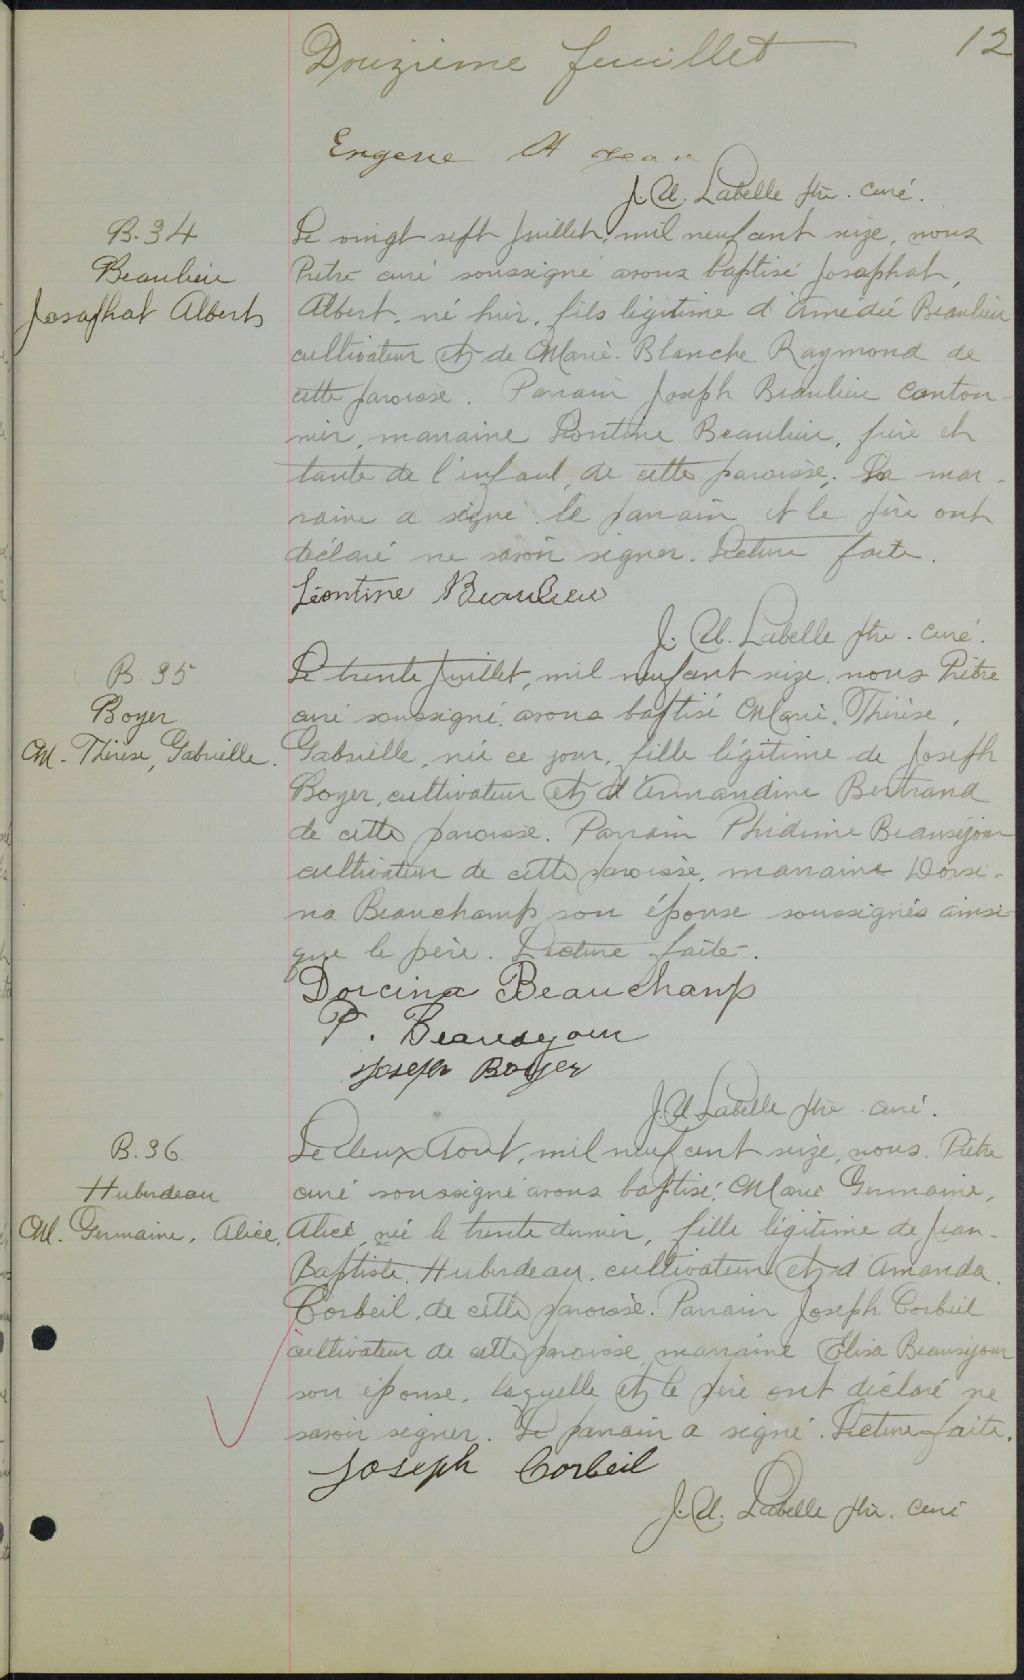 12
Douzième feuillet
Eugene St Jean
J. U. Labelle ptre. curé.
B. 34
Beaulieu
Josaphat Albert
Le vingt sept Juillet, mil neuf cent seize, nous
Prêtre curé soussigné avons baptisé Josaphat,
Albert, né hier, fils légitime d'Amédée Beaulieu
cultivateur et de Marie-Blanche Raymond de
cette paroisse. Parrain Joseph Beaulieu canton-
nier, marraine Léontine Beaulieu, frère et
tante de l'enfant, de cette paroisse. La mar-
raine a signé le parrain et le père ont
déclaré ne savoir signer. Lecture faite.
Léontine Beaulieu
J. U. Labelle ptre. curé.
B. 35
Boyer
M. Thérèse, Gabrielle.
Le trente Juillet, mil neuf cent seize, nous Prêtre
curé soussigné, avons baptisé Marie, Thérèse,
Gabrielle, née ce jour, fille légitime de Joseph
Boyer, cultivateur et d'Armandine Bertrand
de cette paroisse. Parrain Phidime Beauséjour
cultivateur de cette paroisse, marraine Dorsi-
na Beauchamp son épouse soussignés ainsi
que le père. Lecture faite.
Dorcina Beauchamp
P. Beausejour
Joseph Boyer
J. U. Labelle ptre. curé.
B. 36
Huberdeau
M. Germaine, Alice.
Le deux Aout, mil neuf cent seize, nous, Prêtre
curé soussigné avons baptisé, Marie Germaine,
Alice, née le trente dernier, fille légitime de Jean-
Baptiste Huberdeau, cultivateur et d'Amanda
Corbeil, de cette paroisse. Parrain Joseph Corbeil
cultivateur de cette paroisse, marraine Elisa Beauséjour
son épouse, laquelle et le père ont déclaré ne
savoir signer. Le parrain a signé. Lecture faite.
Joseph Corbeil
J. U. Labelle ptre. curé